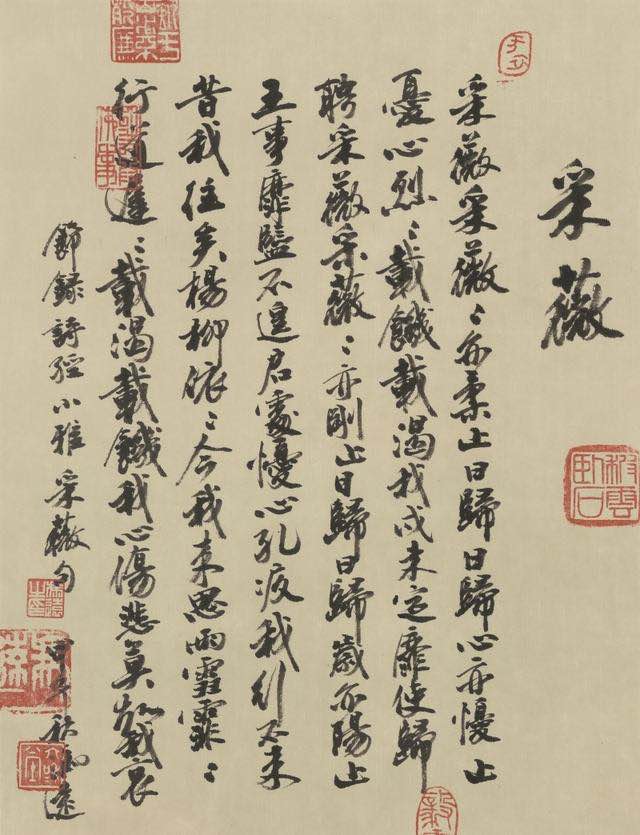 采薇
采薇采薇〻亦柔止曰歸曰歸心亦懮止
憂心烈〻載饑載渴我戍未定靡使歸
聘采薇采薇〻亦剛止曰歸曰歸歲亦陽止
王事靡盬不遑启處懮心孔疚我行不來
昔我往矣楊柳依〻今我來思雨雪霏〻
行道遲〻載渴載饑我心傷悲莫知我哀
節錄詩經小雅采薇句
甲午秋遠
雲臥石